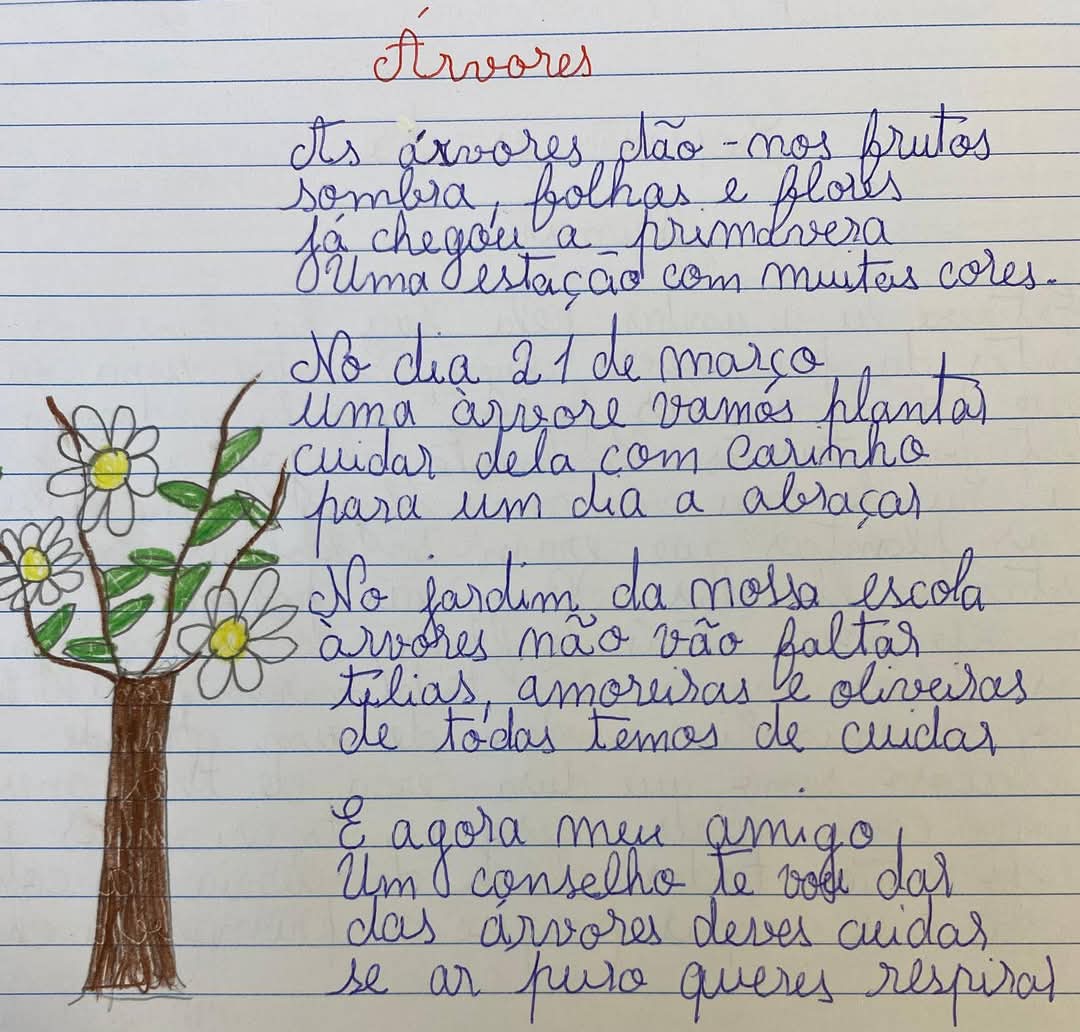 Árvores
As árvores dão-nos frutos
sombra, folhas e flores
já chegou a primavera
Uma estação com muitas cores.
No dia 21 de março
uma àrvore vamos plantar
cuidar dela com carinho
para um dia a abraçar
No jardim da nossa escola
àrvores não vão faltar
tílias, amoreiras e oliveiras
de todas temos de cuidar
E agora meu amigo,
Um conselho te vou dar
das árvores deves cuidar
se ar puro queres respirar